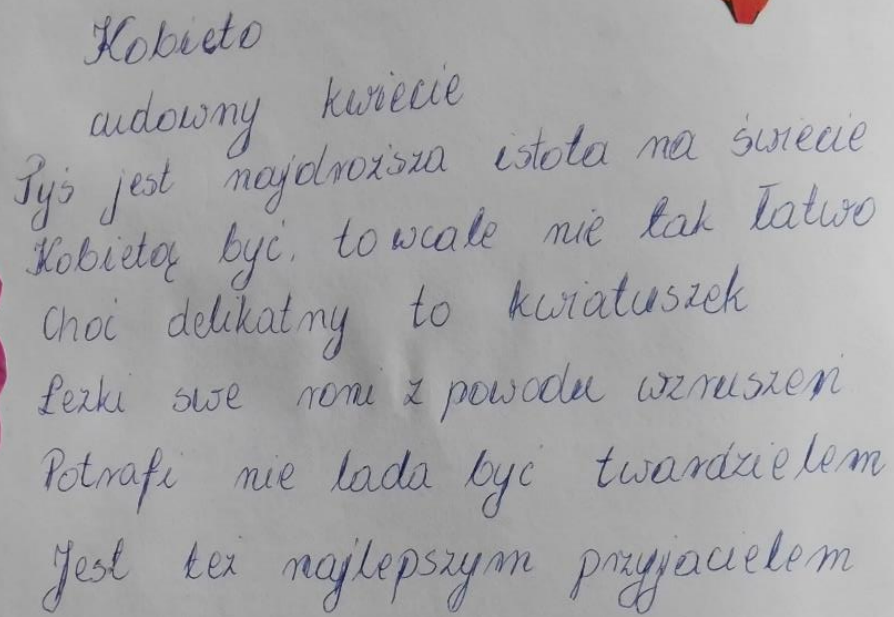 Kobieto
cudowny kwiecie
Tyś jest najdroższa istota na świecie
Kobietą być, to wcale nie tak łatwo
Choć delikatny to kwiatuszek
Łezki swe roni z powodu wzruszeń
Potrafi nie lada być twardzielem
Jest też najlepszym przyjacielem